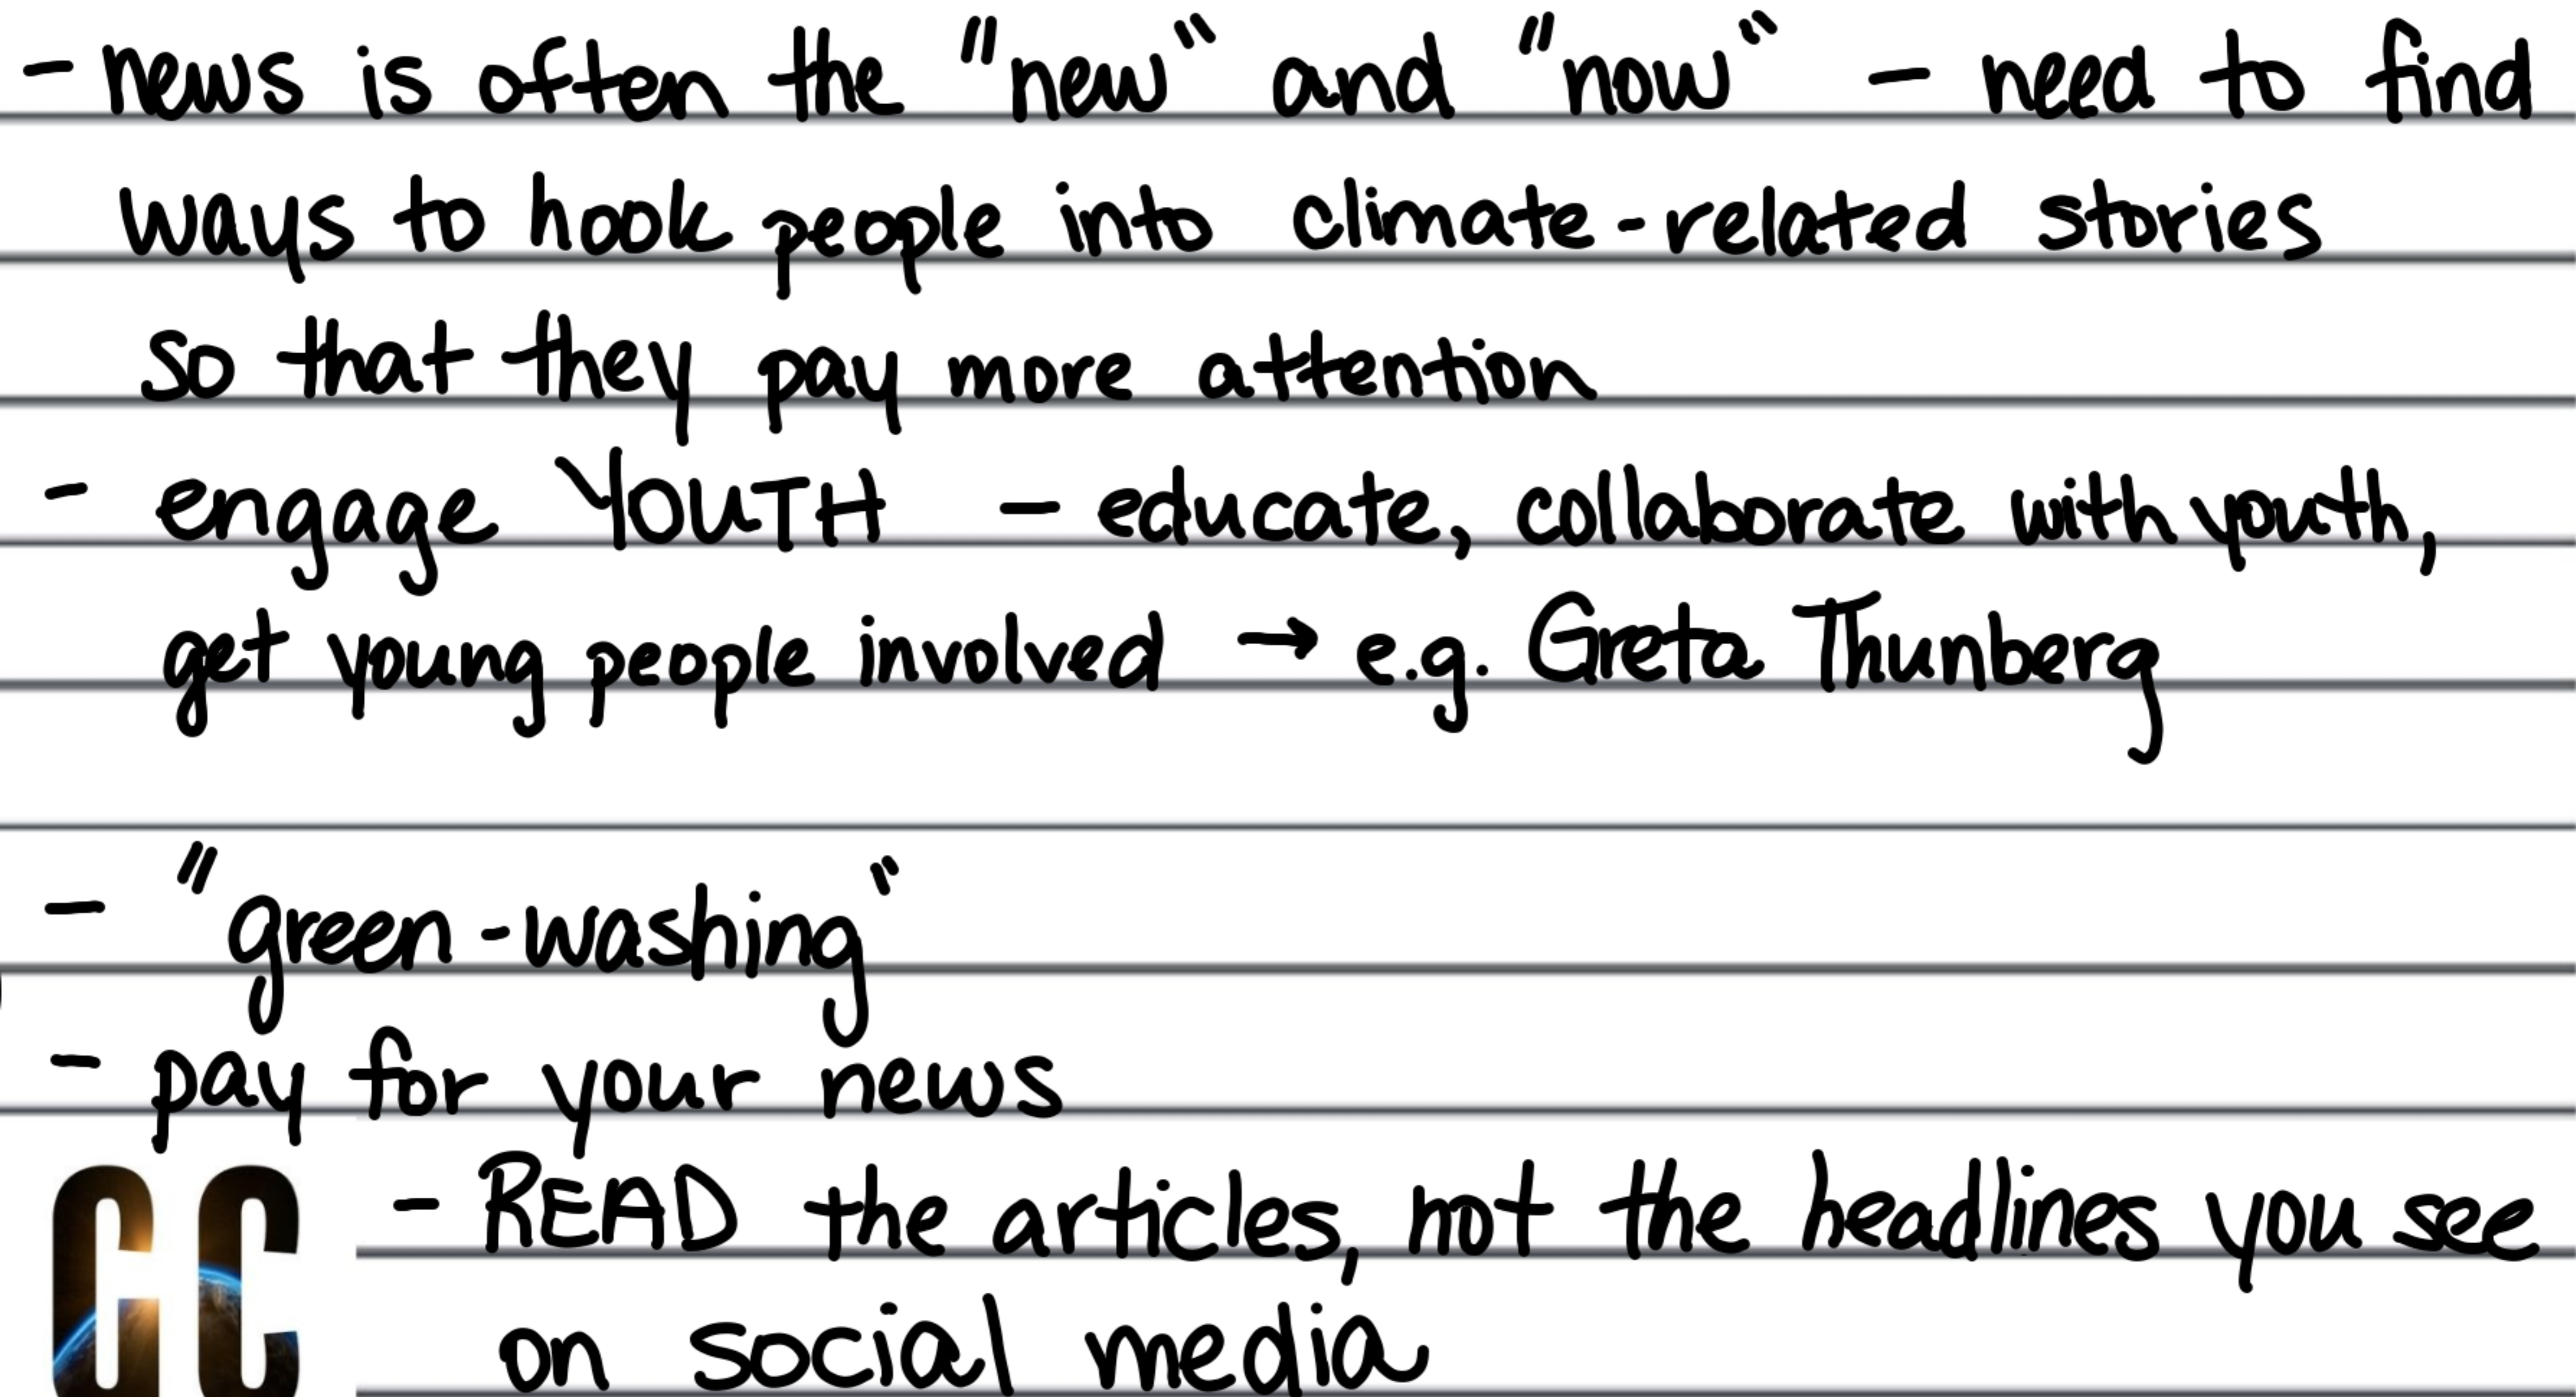 - news is often the "new" and "now" - need to find
ways to hook people into climate-related stories
so that they pay more attention
- engage YOUTH - educate, collaborate with youth,
get young people involved → e.g. Greta Thunberg
- "green-washing"
- pay for your news
- READ the articles, not the headlines you see
on social media
GC